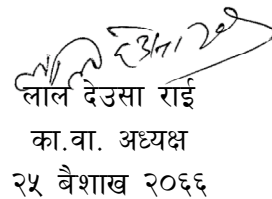 लाल देउसा राई
का.वा. अध्यक्ष
२५ बैशाख २०६६